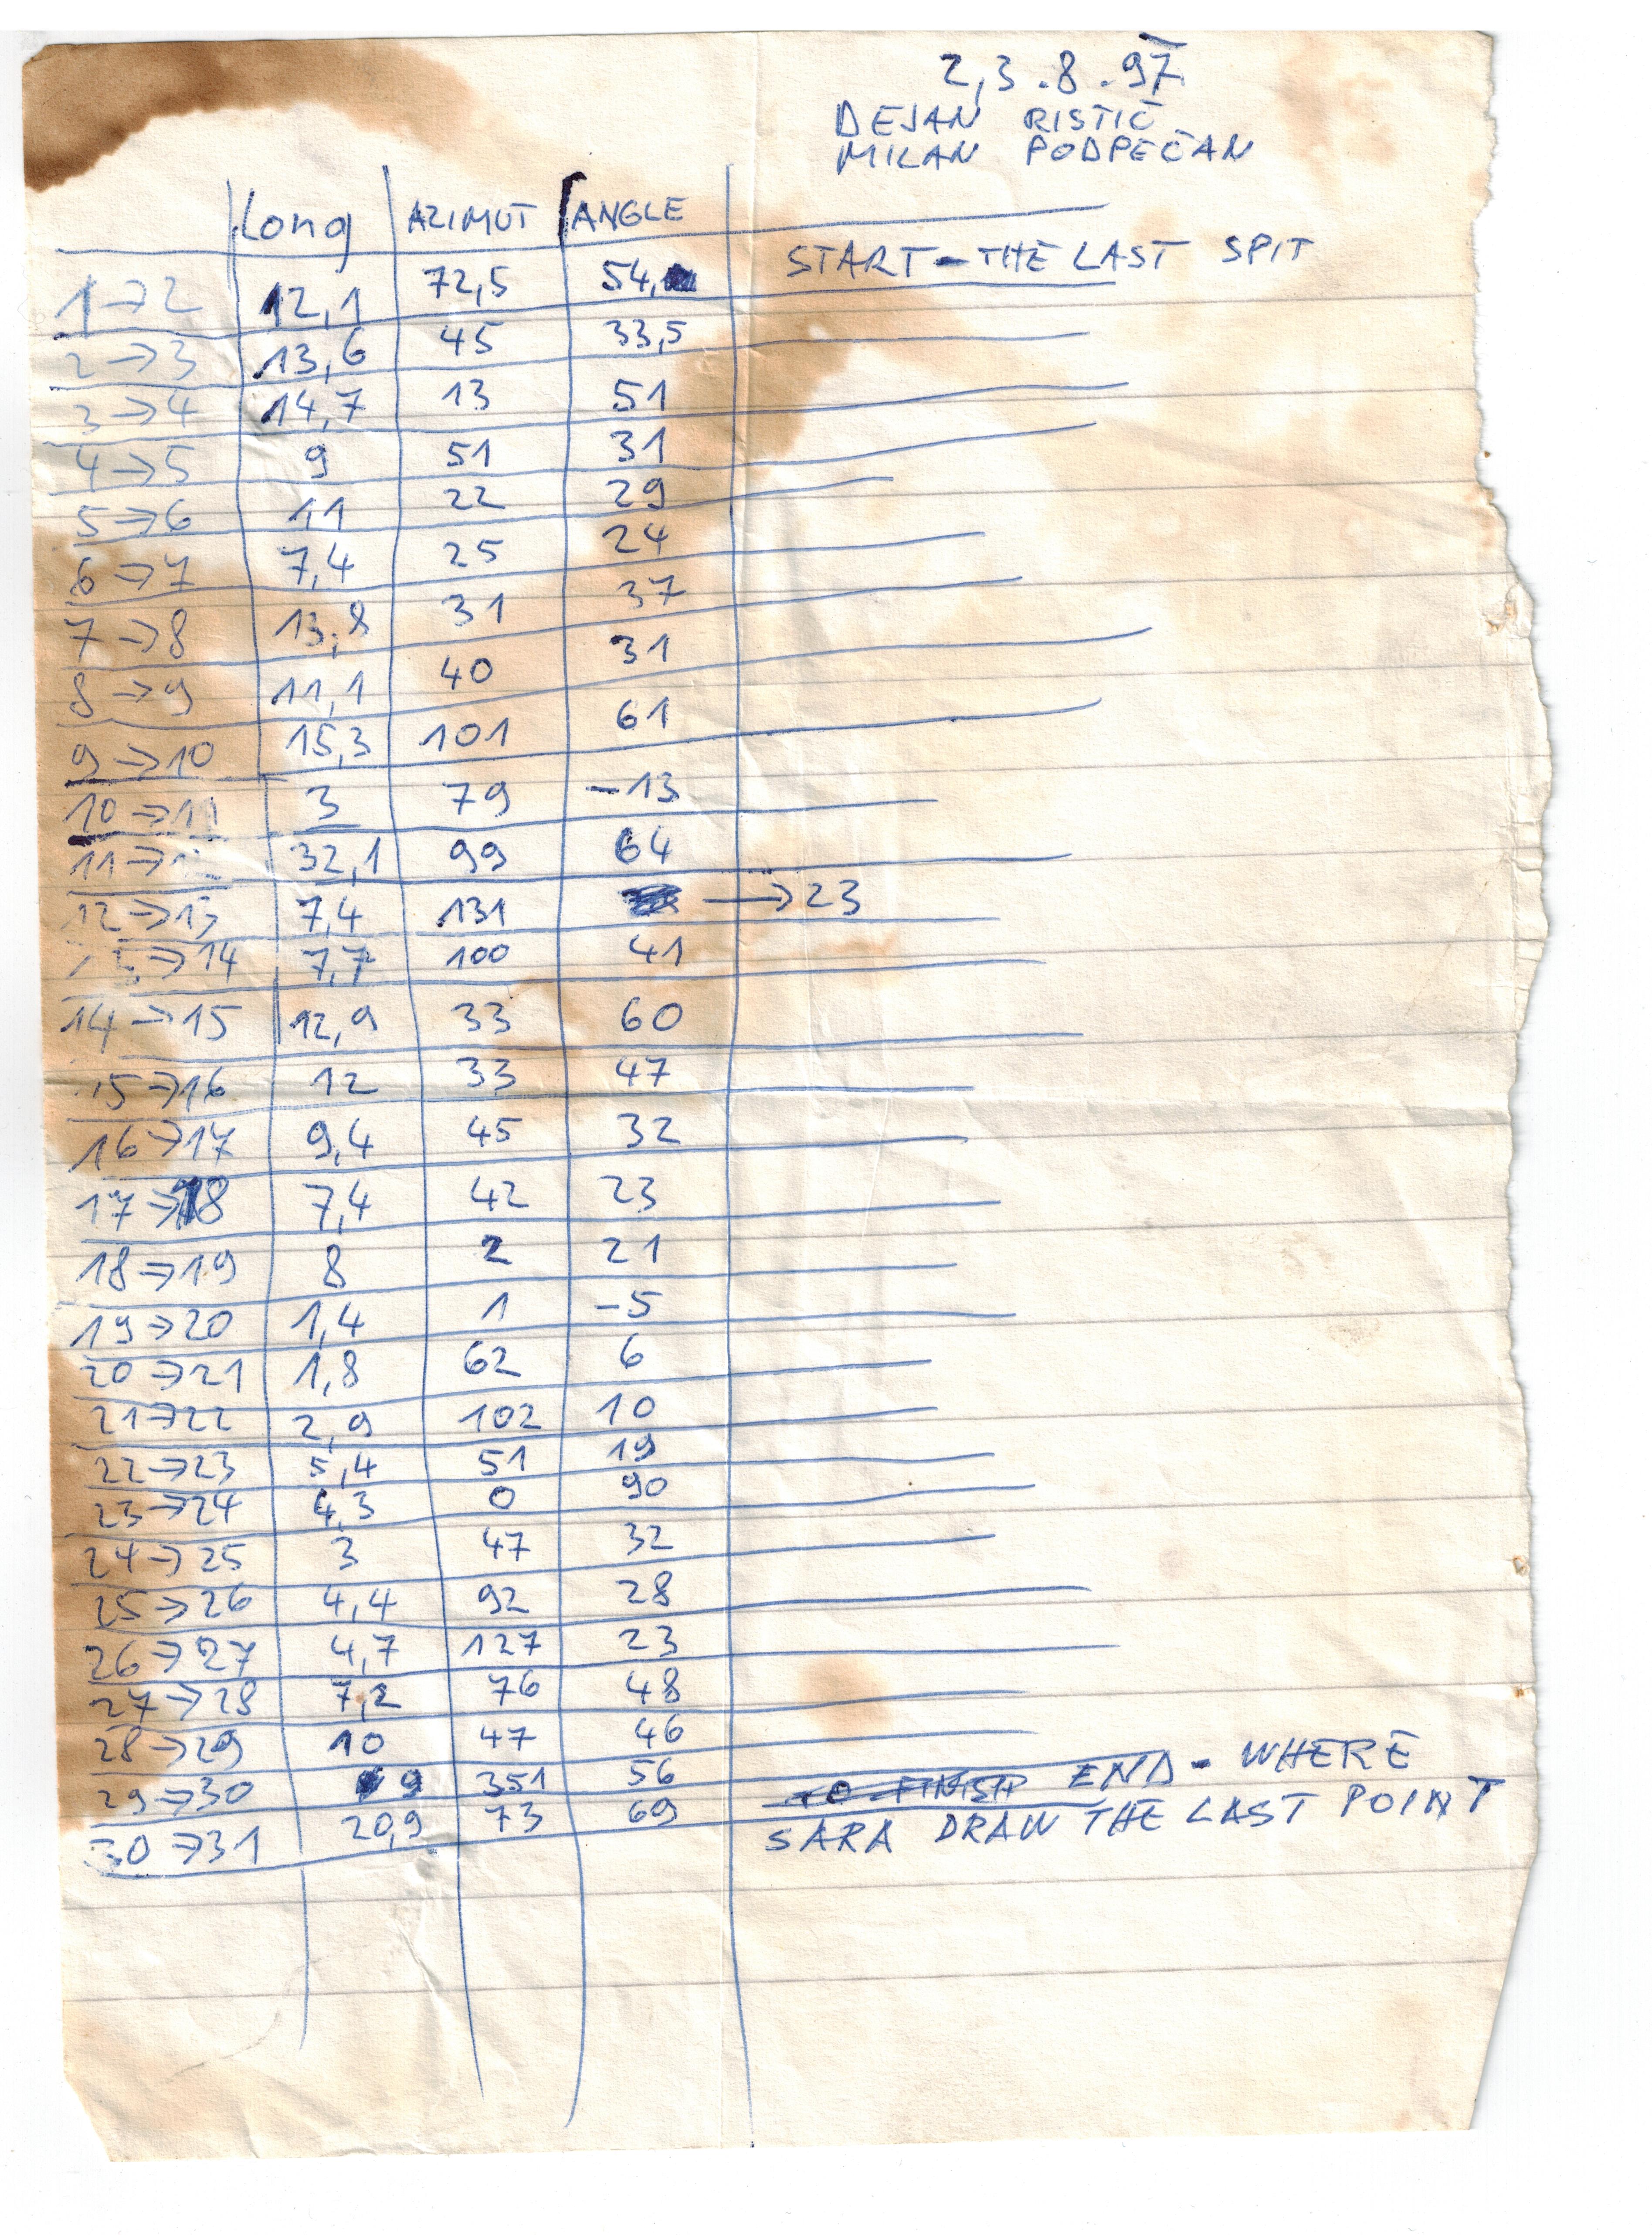 2,3.8.97
DEJAN RISTIČ
MILAN PODPEČAN
Long AZIMUT ANGLE
START - THE LAST SPIT
1→2 12,1 72,5 54,
2→3 13,6 45 33,5
3→4 14,7 13 51
4→5 9 51 31
5→6 11 22 29
6→7 7,4 25 24
7→8 13,8 31 37
8→9 11,1 40 31
9→10 15,3 101 61
10→11 3 79 -13
11→ 32,1 99 64
12→13 7,4 131 →23
→14 7,7 100 41
14→15 12,9 33 60
15→16 12 33 47
16→17 9,4 45 32
17→18 7,4 42 23
18→19 8 2 21
19→20 1,4 1 -5
20→21 1,8 62 6
21→22 2,9 102 10
22→23 5,4 51 19
23→24 4,3 0 90
24→25 3 47 32
25→26 4,4 92 28
26→27 4,7 127 23
27→28 7,2 76 48
28→29 10 47 46
29→30 9 351 56 TO FINISH END - WHERE
30→31 20,9 73 69 SARA DRAW THE LAST POINT